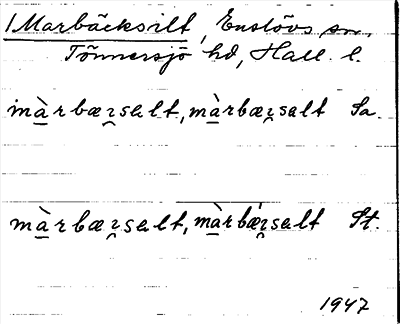 Marbäcksilt, Enslövs sn,
Tönnersjö hd, Hall. l.
màrbæɀsalt, màrbæɀsalt Sa.
màrbæɀsalt, màrbǽɀsalt St.
1947